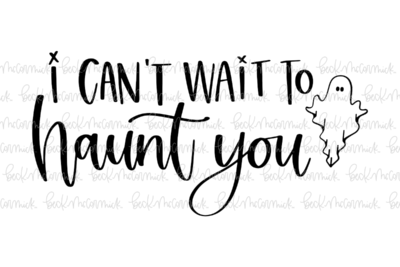 i CAN'T WAIT TO
haunt you